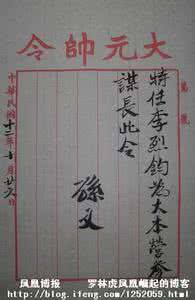 大元帥令
特任李烈鈞為大本營參
謀長此令
孫文
中華民國十二年十月廿六日
凤凰博报 罗林虎凤凰崛起的博客
http://blog.ifeng.com/1252059.html